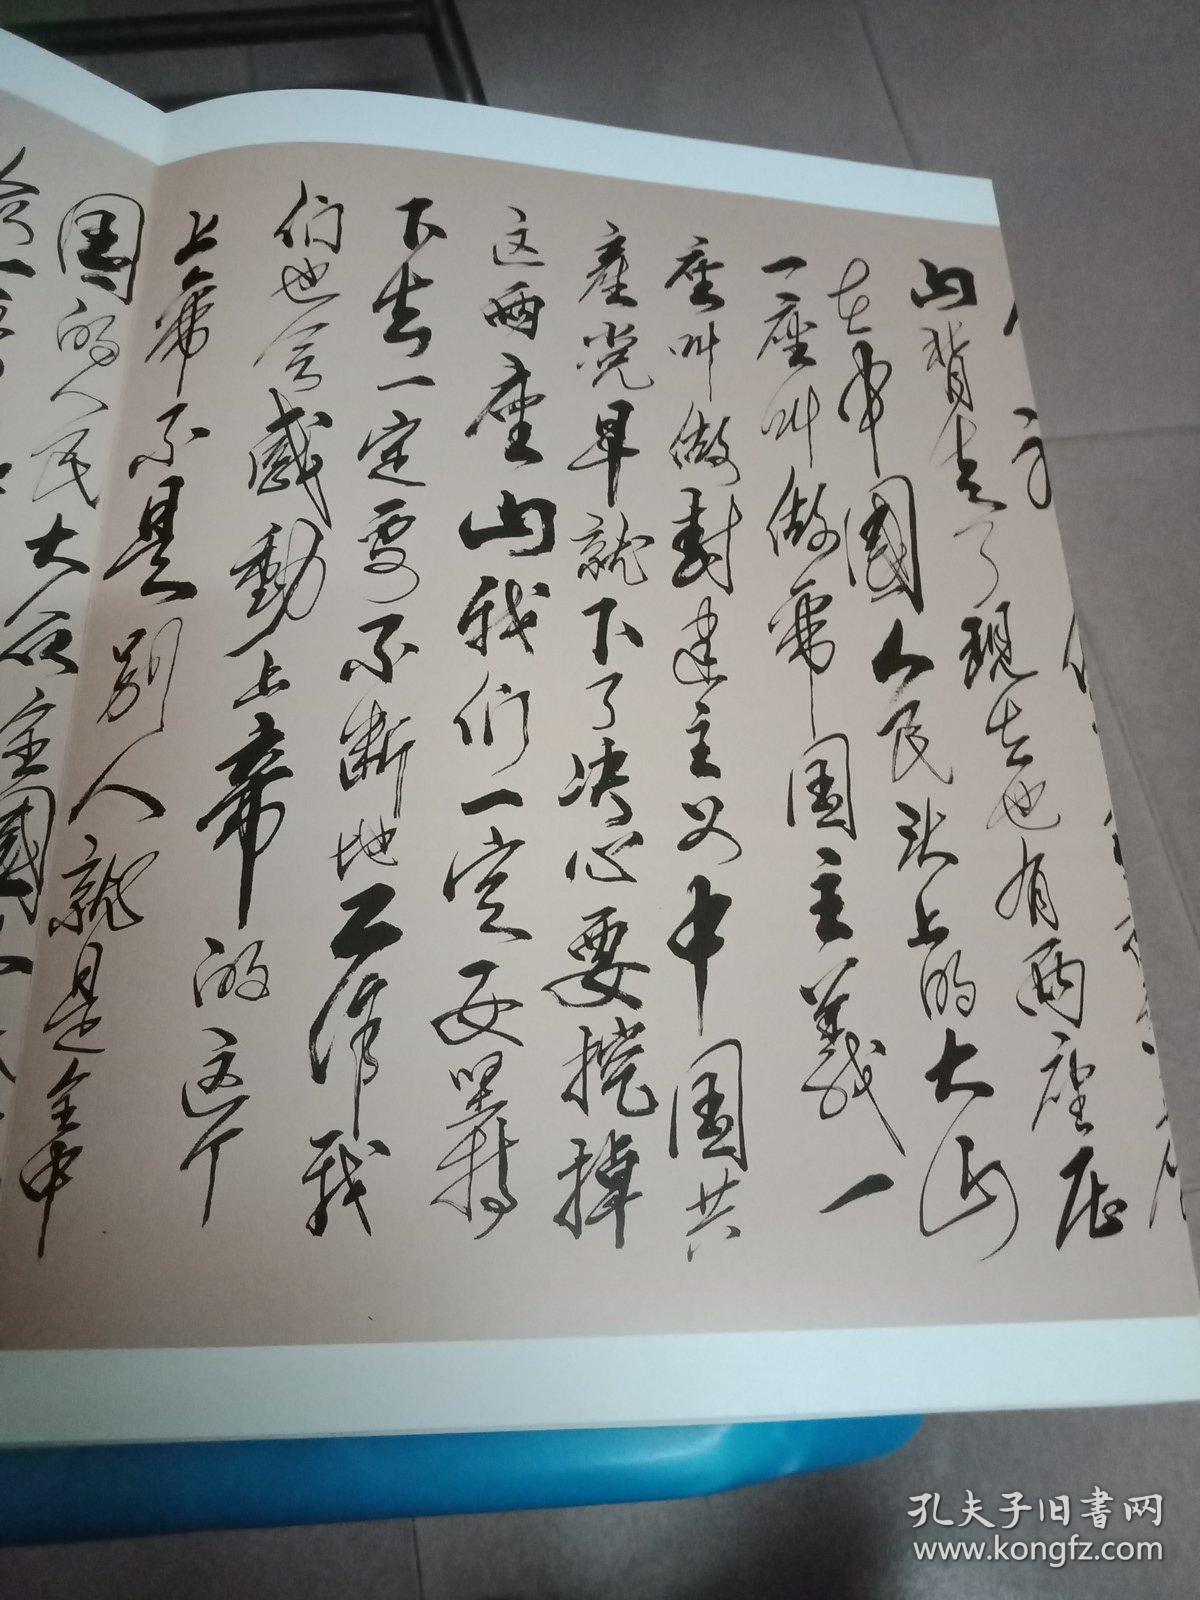 山背走了现在也有两座压
在中國人民头上的大山
一座叫做帝国主義一
座叫做封建主义中国共
產党早就下了决心要挖掉
这两座山我们一定要坚持
下去一定要不断地工作我
们也会感動上帝的这个
上帝不是别人就是全中
国的人民大众全國人
孔夫子旧书网
www.kongfz.com